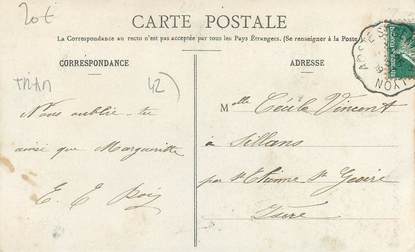 20€
CARTE POSTALE
La Correspondance au recto n'est pas acceptée par tous les Pays Étrangers. (Se renseigner à la Poste
CORRESPONDANCE
ADRESSE
42)
Nous oublie-tu
ainsi que Marguerite
E. E.
Melle Cécile Vincent
à Sillans
par St Etienne St Geoire
Isère
LYON